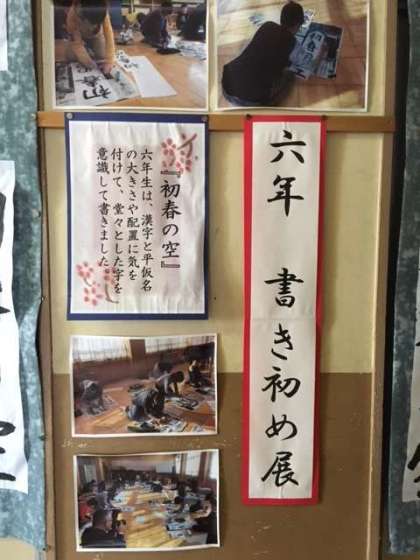 六年 書き初め展
『初春の空』
六年生は、漢字と平仮名
の大きさや配置に気を
付けて、堂々とした字を
意識して書きました。
初春